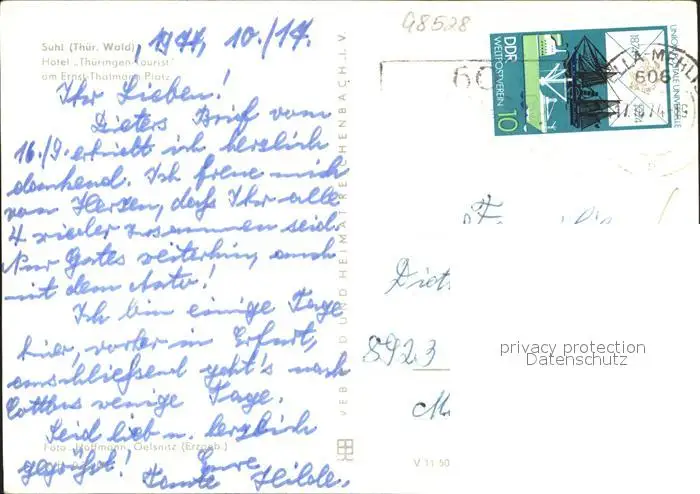 Suhl (Thür. Wald)
Hotel „Thüringen-Tourist"
am Ernst-Thälmann-Platz
1974, 10./17.
Ihr Lieben!
Dieters Brief vom
16./9. erhielt ich herzlich
dankend. Ich freue mich
von Herzen, daß Ihr alle
4 wieder zusammen seid.
Nur Gutes weiterhin, auch
mit dem Auto!
Ich bin einige Tage
hier, vorher in Erfurt,
anschließend geht's nach
Cottbus wenige Tage.
Seid lieb u. herzlich
gegrüßt! Eure
Tante Hilde.
Foto: Hoffmann, Oelsnitz (Erzgeb.)
VEB BILD UND HEIMAT REICHENBACH I. V.
V 11 50
98528
DDR
WELTPOSTVEREIN
10
UNION POSTALE UNIVERSELLE
1874
1974
ZELLA-MEHLIS
606
60
Diet
8923
privacy protection
Datenschutz